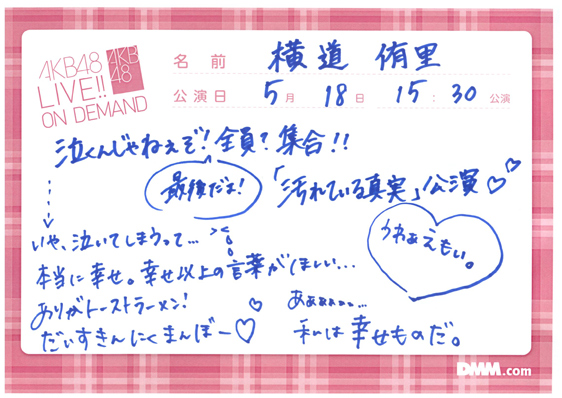 AKB48
LIVE!!
ON DEMAND
AKB
48
名前 横道 侑里
公演日 5月 18日 15:30公演
泣くんじゃねぇぞ!全員?集合!!
最後だよ!
「汚れている真実」公演♡♡
いや、泣いてしまうって… ><
うわぁえもい。
本当に幸せ。幸せ以上の言葉がほしい…
ありがトーストラーメン!
だいすきんにくまんぼー♡
あぁぁぁぁ…
私は幸せものだ。
DMM.com